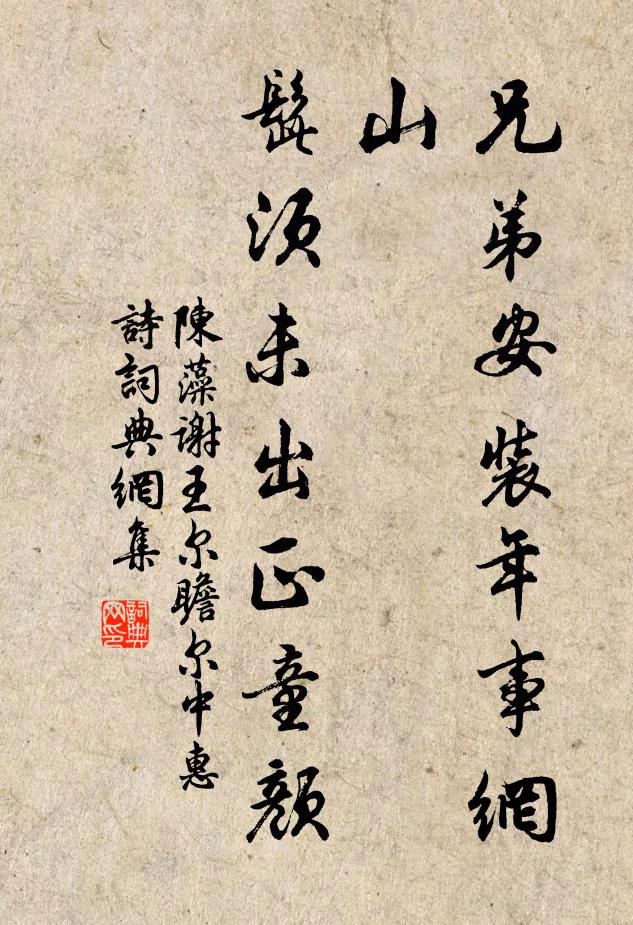 兄弟安裝年事網
山
髭須未出正童顏
陳藻謝王尔瞻尔中惠
詩詞典網集
詞典
网印